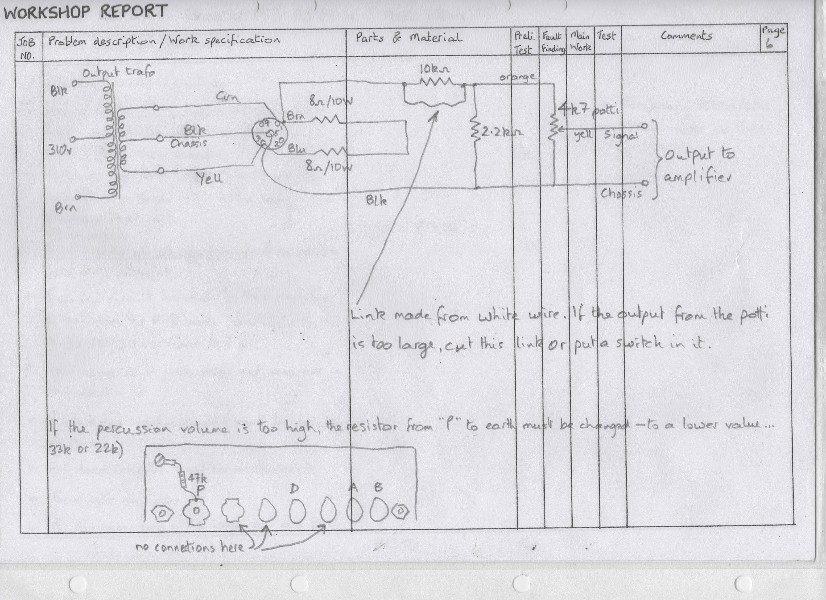 WORKSHOP REPORT
JOB NO.
Problem description / Work specification
Parts & Material
Preli. Test
Fault finding
Main Work
Test
Comments
Page 6
Output trafo
Blk
310v
Brn
Grn
Blk
Chassis
Yell
8Ω/10W
Brn
Blu
8Ω/10W
Blk
10kΩ
orange
2.2kΩ
4k7 potti
yell
Signal
Chassis
Output to
amplifier
Link made from white wire. If the output from the potti
is too large, cut this link or put a switch in it.
If the percussion volume is too high, the resistor from "P" to earth must be changed - to a lower value...
33k or 22k)
47k
P
D
A
B
no connetions here